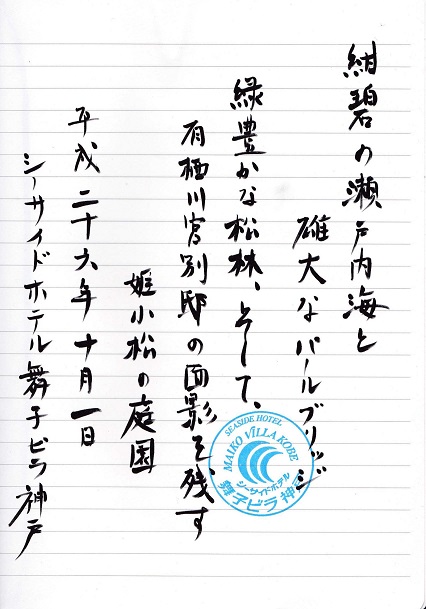 紺碧の瀬戸内海と
雄大なパールブリッジ
緑豊かな松林、そして、
有栖川宮別邸の面影を残す
姫小松の庭園
平成二十六年十月一日
シーサイドホテル舞子ビラ神戸
SEASIDE HOTEL
MAIKO VILLA KOBE
シーサイドホテル
舞子ビラ神戸